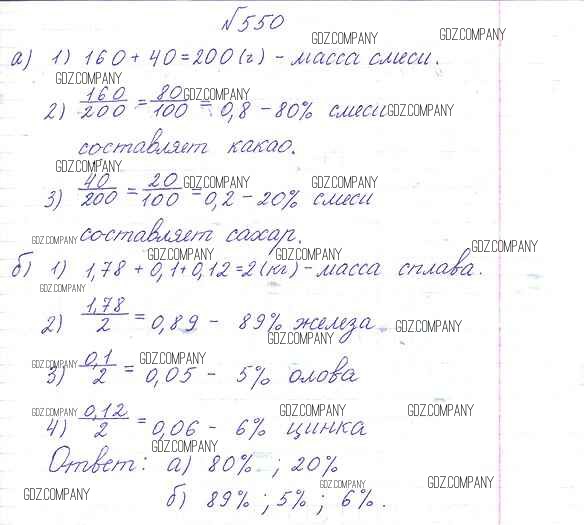 №550
GDZ.COMPANY GDZ.COMPANY
а) 1) 160 + 40 = 200 (г) - масса смеси.
GDZ.COMPANY
2) 160/200 = 80/100 = 0,8 - 80% смеси
GDZ.COMPANY GDZ.COMPANY
составляет какао.
GDZ.COMPANY
3) 40/200 = 20/100 = 0,2 - 20% смеси
GDZ.COMPANY GDZ.COMPANY
составляет сахар.
GDZ.COMPANY GDZ.COMPANY GDZ.COMPANY GDZ.COMPANY
б) 1) 1,78 + 0,1 + 0,12 = 2 (кг) - масса сплава.
GDZ.COMPANY
2) 1,78/2 = 0,89 - 89% железа
GDZ.COMPANY GDZ.COMPANY
3) 0,1/2 = 0,05 - 5% олова
GDZ.COMPANY GDZ.COMPANY
4) 0,12/2 = 0,06 - 6% цинка
GDZ.COMPANY GDZ.COMPANY GDZ.COMPANY
GDZ.COMPANY
Ответ: а) 80% ; 20%
GDZ.COMPANY GDZ.COMPANY GDZ.COMPANY
б) 89% ; 5% ; 6%.